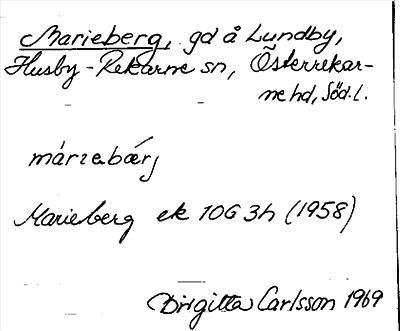 Marieberg, gd å Lundby,
Husby-Rekarne sn, Österrekar-
ne hd, Söd. l.
márıebær̨j
Marieberg ek 10G 3h (1958)
Birgitta Carlsson 1969